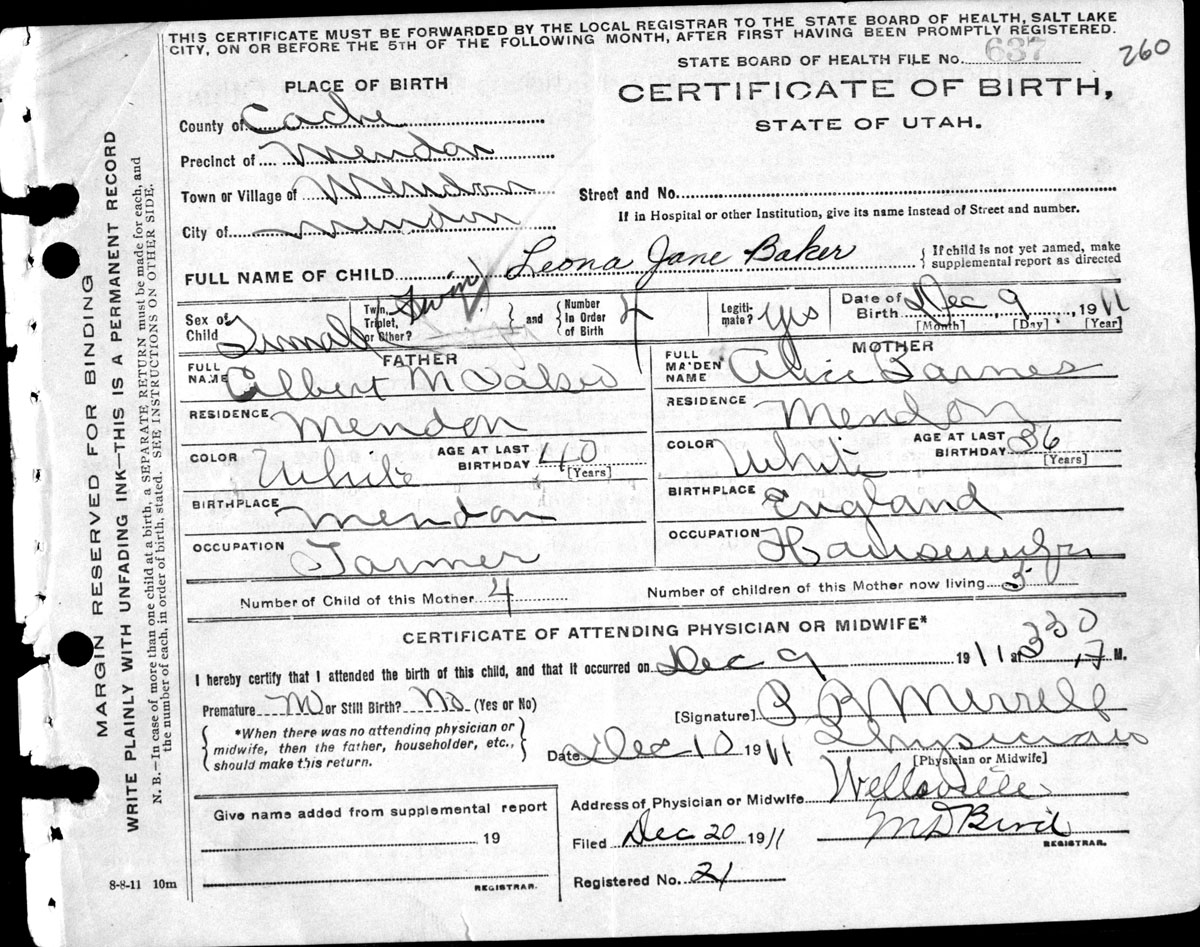 THIS CERTIFICATE MUST BE FORWARDED BY THE LOCAL REGISTRAR TO THE STATE BOARD OF HEALTH, SALT LAKE
CITY, ON OR BEFORE THE 5TH OF THE FOLLOWING MONTH, AFTER FIRST HAVING BEEN PROMPTLY REGISTERED.
STATE BOARD OF HEALTH FILE No. 637
260
PLACE OF BIRTH
CERTIFICATE OF BIRTH,
STATE OF UTAH.
County of Cache
Precinct of Mendon
Town or Village of Mendon
Street and No.
City of Mendon
If in Hospital or other Institution, give its name instead of Street and number.
FULL NAME OF CHILD Leona Jane Baker
{ If child is not yet named, make
supplemental report as directed
Sex of Child Female
Twin, Triplet, or Other? Twin
and Number In Order of Birth 4
Legiti-mate? Yes
Date of Birth Dec 9, 1911
[Month] [Day] [Year]
FATHER
FULL NAME Albert M Baker
RESIDENCE Mendon
COLOR White AGE AT LAST BIRTHDAY 40 [Years]
BIRTHPLACE Mendon
OCCUPATION Farmer
MOTHER
FULL MAIDEN NAME Alice Barnes
RESIDENCE Mendon
COLOR White AGE AT LAST BIRTHDAY 36 [Years]
BIRTHPLACE England
OCCUPATION Housewife
Number of Child of this Mother 4
Number of children of this Mother now living 3
CERTIFICATE OF ATTENDING PHYSICIAN OR MIDWIFE*
I hereby certify that I attended the birth of this child, and that it occurred on Dec 9 1911 at 330 M.
Premature or Still Birth? No (Yes or No)
[Signature] Merrell
{ *When there was no attending physician or
midwife, then the father, householder, etc.,
should make this return. }
Date Dec 10 1911
Physician
[Physician or Midwife]
Address of Physician or Midwife Wellsville
Give name added from supplemental report
19
REGISTRAR.
Filed Dec 20 1911
M D Bird
REGISTRAR.
Registered No. 21
8-8-11 10m
MARGIN RESERVED FOR BINDING
WRITE PLAINLY WITH UNFADING INK—THIS IS A PERMANENT RECORD
N. B.—In case of more than one child at a birth, a SEPARATE RETURN must be made for each, and
the number of each, in order of birth, stated. SEE INSTRUCTIONS ON OTHER SIDE.